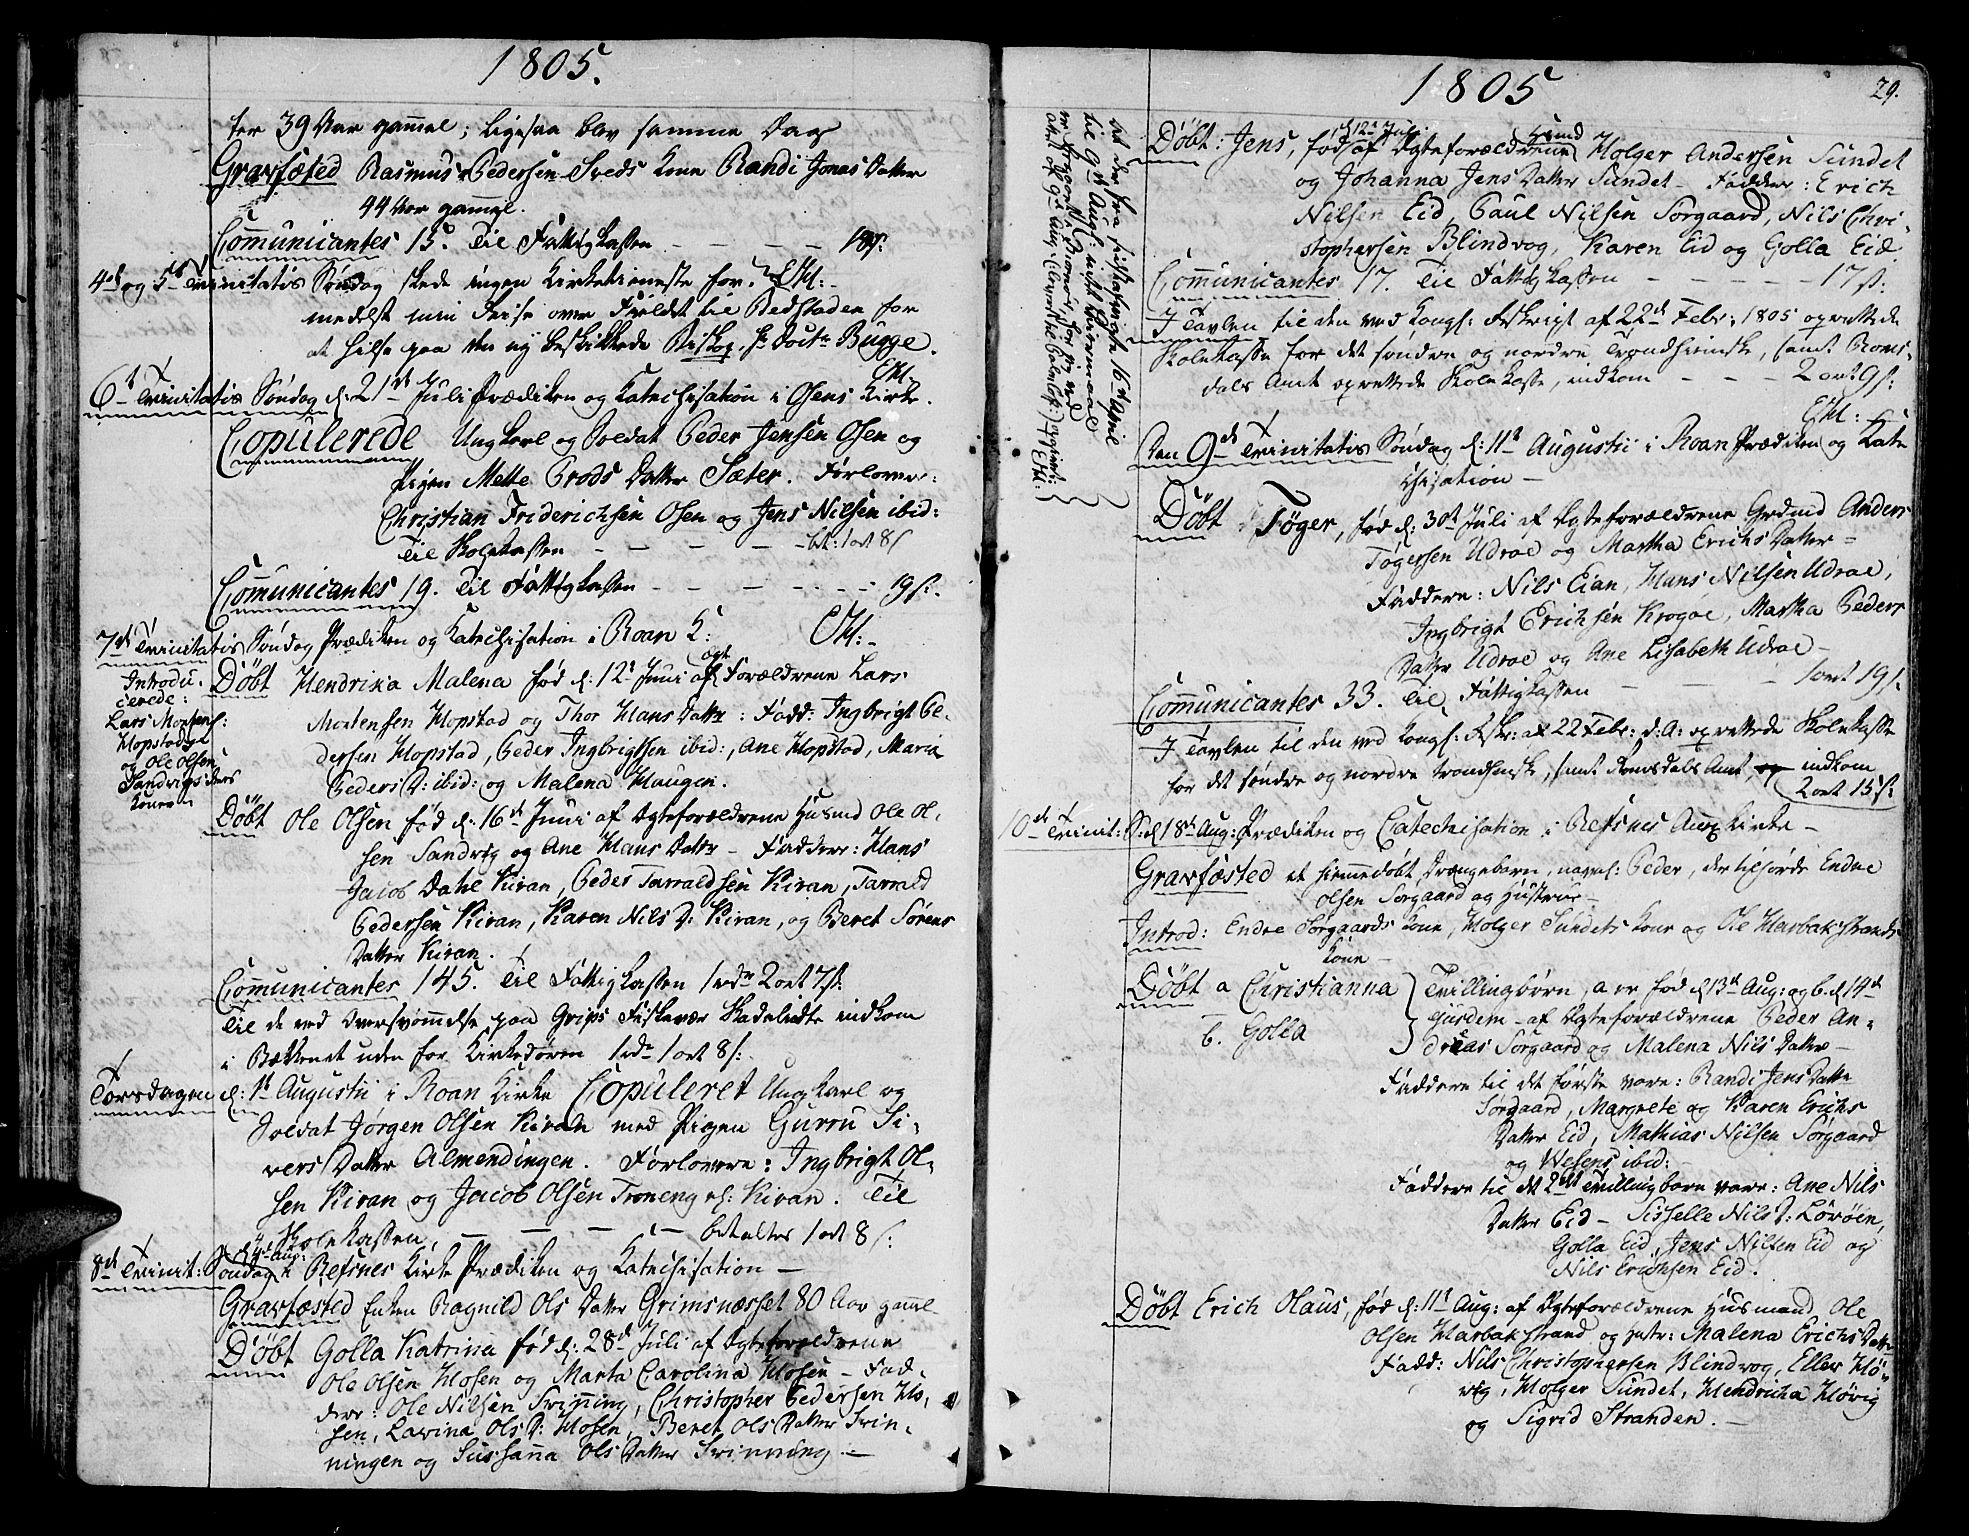 1805.
ter 39 Aar gammel; ligesaa blev samme Dag
Gravfæsted Rasmus Pedersen Sveds Kone Randi Jonas Datter
44 Aar gammel.
Communicantes 15. Til Fattigkassen - - - - 18 s:
4de og 5te Trinitatis Søndag skede ingen Kirketieneste for-
medelst min Reise over Fieldet til Bedstaden for
at hilse paa den ny beskikkede Biskop, Hr Doctr Bugge.
6te Trinitatis Søndag d: 21de Juli Prædiken og Katechisation i Osens Kirke.
Copulerede Ungkarl og Soldat Peder Jensen Osen og
Pigen Mette Datter Sæter. Forlovere:
Christian Friderichsen Osen og Jens Nilsen ibid:
Til Skolekassen - - - - bet: 1 ort 8 s
Communicantes 19. Til Fattigkassen - - - - 19 s:
7de Trinitatis Søndag Prædiken og Katechisation i Roan K:
Introdu-
cerede:
Lars Mortens:
Hopstads
og Ole Olsen
Sandvigs ders
Koner
Døbt Hendrika Malena fød d: 12te Juni af ægt Forældrene Lars
Mortensen Hopstad og Thor Hans Datter: Fadd: Ingbrigt Pe-
dersen Hopstad, Peder Ingbrigtsen ibid:, Ane Hopstad, Maria
Peders D: ibid: og Malena Haugen.
Døbt Ole Olsen fød d: 16de Juni af Ægteforældrene Husmd Ole Ol-
sen Sandvig og Ane Hans Datter - Faddere: Hans
Jacob Dahl Kiran, Peder Tarraldsen Kiran, Tarrald
Pedersen Kiran, Karen Nils D: Kiran, og Beret Sørens
Datter Kiran.
Communicantes 145. Til Fattigkassen 1 rdr 2 ort 7 s:
Til de ved Oversvømmelse paa Grips Fiskevær Skadelidte indkom
i Bækkenet uden for Kirkedøren 1 rdr 1 ort 8 s:
Torsdagen d: 1te Augustii i Roan Kirke Copuleret Ungkarl og
Soldat Jørgen Olsen Kiran med Pigen Gurru Si-
vers Datter Almendingen. Forlovere: Ingbrigt Ol-
sen Kiran og Jacob Olsen Troneng Kiran. Til
Skolekassen, - - - - betaltes 1 ort 8 s:
8de Trinit: Søndag d 4de Aug: i Refsnes Kirke Prædiken og Katechisation -
Gravfæsted Enken Ragnild Ols Datter Grimsnæsset 80 Aar gaml
Døbt Golla Katrina fød d: 28de Juli af Ægteforældrene
Ole Olsen Hosen og Marta Carolina Hosen - Fad-
dere: Ole Nilsen Svinning, Christopher Pedersen Ho-
sen, Lavina Ols D: Hosen, Beret Ols Datter Svin-
ningen og Sussanna Ols Datter Svinning -
1805
29.
at der fra sidstafvigte 16de April
til 9de Aug: intet
Døbt: Jens, fød d: 12te Juli af Ægteforældrene Husmd Holger Andersen Sundet
og Johanna Jens Datter Sundet - Faddere: Erich
Nilsen Eid, Paul Nilsen Sørgaard, Nils Chri-
stophersen Blindvog, Karen Eid og Golla Eid.
Communicantes 17. Til Fattigkassen - - - - 17 s:
I Tavlen til den ved Kongl: Reskript af 22de Febr: 1805 oprettede
Skolekasse for det søndre og nordre Trondhiemske, samt Roms-
dals Amt oprettede Skolekasse, indkom - - - 2 ort 9 s:
Den 9de Trinitatis Søndag d: 11te Augustii i Roan Prædiken og Kate
chisation -
Døbt Tøger, fød d: 30te Juli af Ægteforældrene Grdmd Anders
Tøgersen Udroe og Martha Erichs Datter -
Faddere: Nils Eian, Hans Nilsen Udroe,
Ingbrigt Erichsen Krogøe, Martha Peders
Datter Udroe og Ane Lisabeth Udroe -
Communicantes 33. Til Fattigkassen - - 1 ort 19 s:
I Tavlen til den ved Kongl: Reskr: af 22 Febr: d: A: oprettede Skolekasse
for det søndre og nordre trondhiemske, samt Romsdals Amt indkom
2 ort 15 s:
10de Trinit: S: d 18de Aug: Prædiken og Catechisation i Refsnes Anx Kirke -
Gravfæsted et hiemmedøbt Drengebarn, navnl: Peder, der tilhørde Endre
Olsen Sørgaard og Hustrue -
Introd: Endre Sørgaards Kone, Holger Sundets Kone og Ole Harbakstrands
Kone -
Døbt a Christianna
b. Golla
Tvillingbørn, a er fød d 13de Aug: og b. d 14de
ejusdem - af Ægteforældrene Peder An-
dreas Sørgaard og Malena Nils Datter -
Faddere til det første vare: Randi Jens Datter
Sørgaard, Margrete og Karen Erichs
Datter Eid, Mathias Nilsen Sørgaard
og ibid:
Faddere til det 2det Tvillingbarn vare: Ane Nils
Datter Eid - Sisselle Nils D: Lørøen,
Golla Eid, Jens Nilsen Eid og
Nils Erichsen Eid.
Døbt Erich Olaus, fød d: 11te Aug: af Ægteforældrene Husmand Ole
Olsen Harbakstrand og Hstr: Malena Erichs Datter
Fadd: Nils Christophersen Blindvog, Eller Hø-
vig, Holger Sundet, Hendricha Høvig
og Sigrid Stranden. -